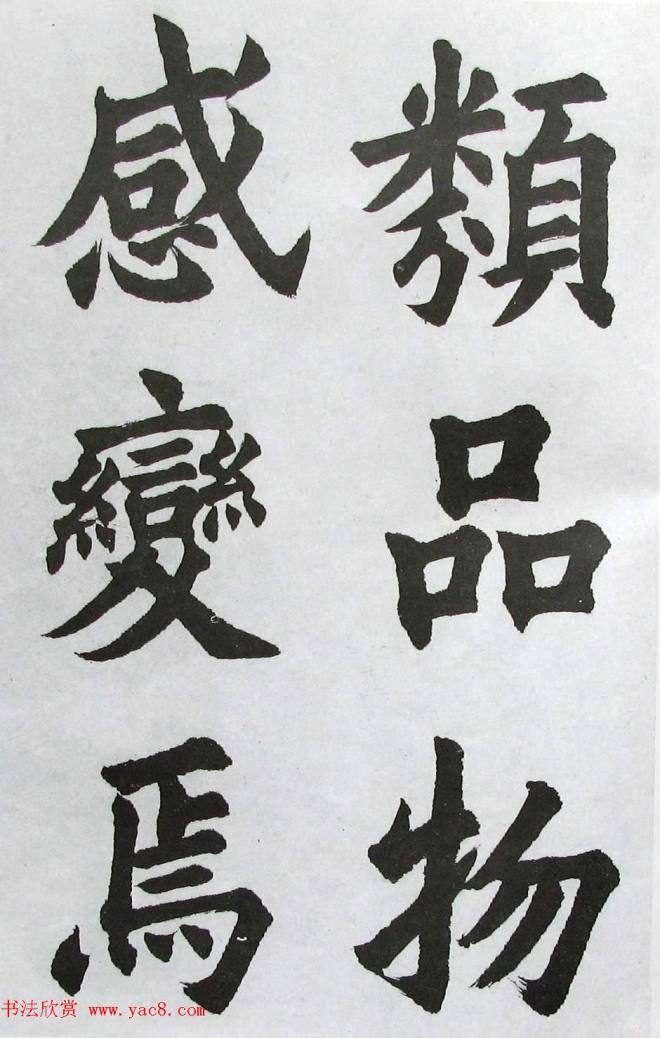 類品物
感變焉
书法欣赏 www.yac8.com